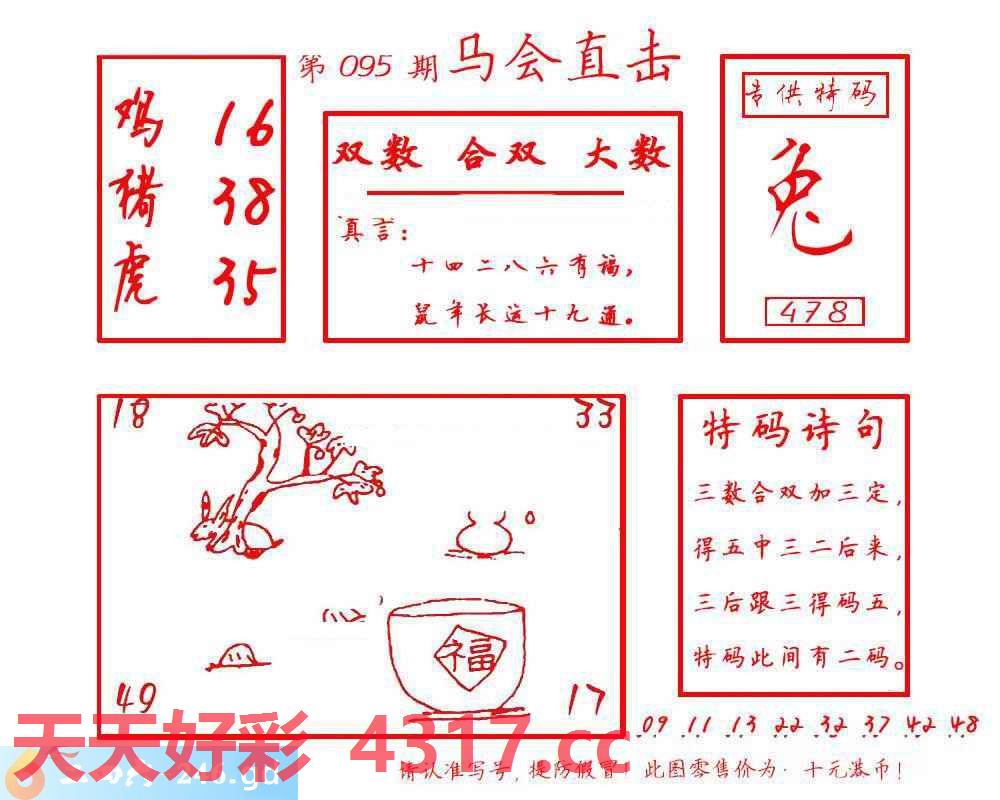 第 095 期 马会直击
鸡 16
猪 38
虎 35
双数 合双 大数
真言：
十四二八六有福，
鼠年长运十九通。
专供特码
兔
478
18 33
福
49 17
特码诗句
三数合双加三定，
得五中三二后来，
三后跟三得码五，
特码此间有二码。
09 11 13 22 32 37 42 48
天天好彩 4317.cc
246.gd
请认准写号，提防假冒！此图零售价为：十元港币！